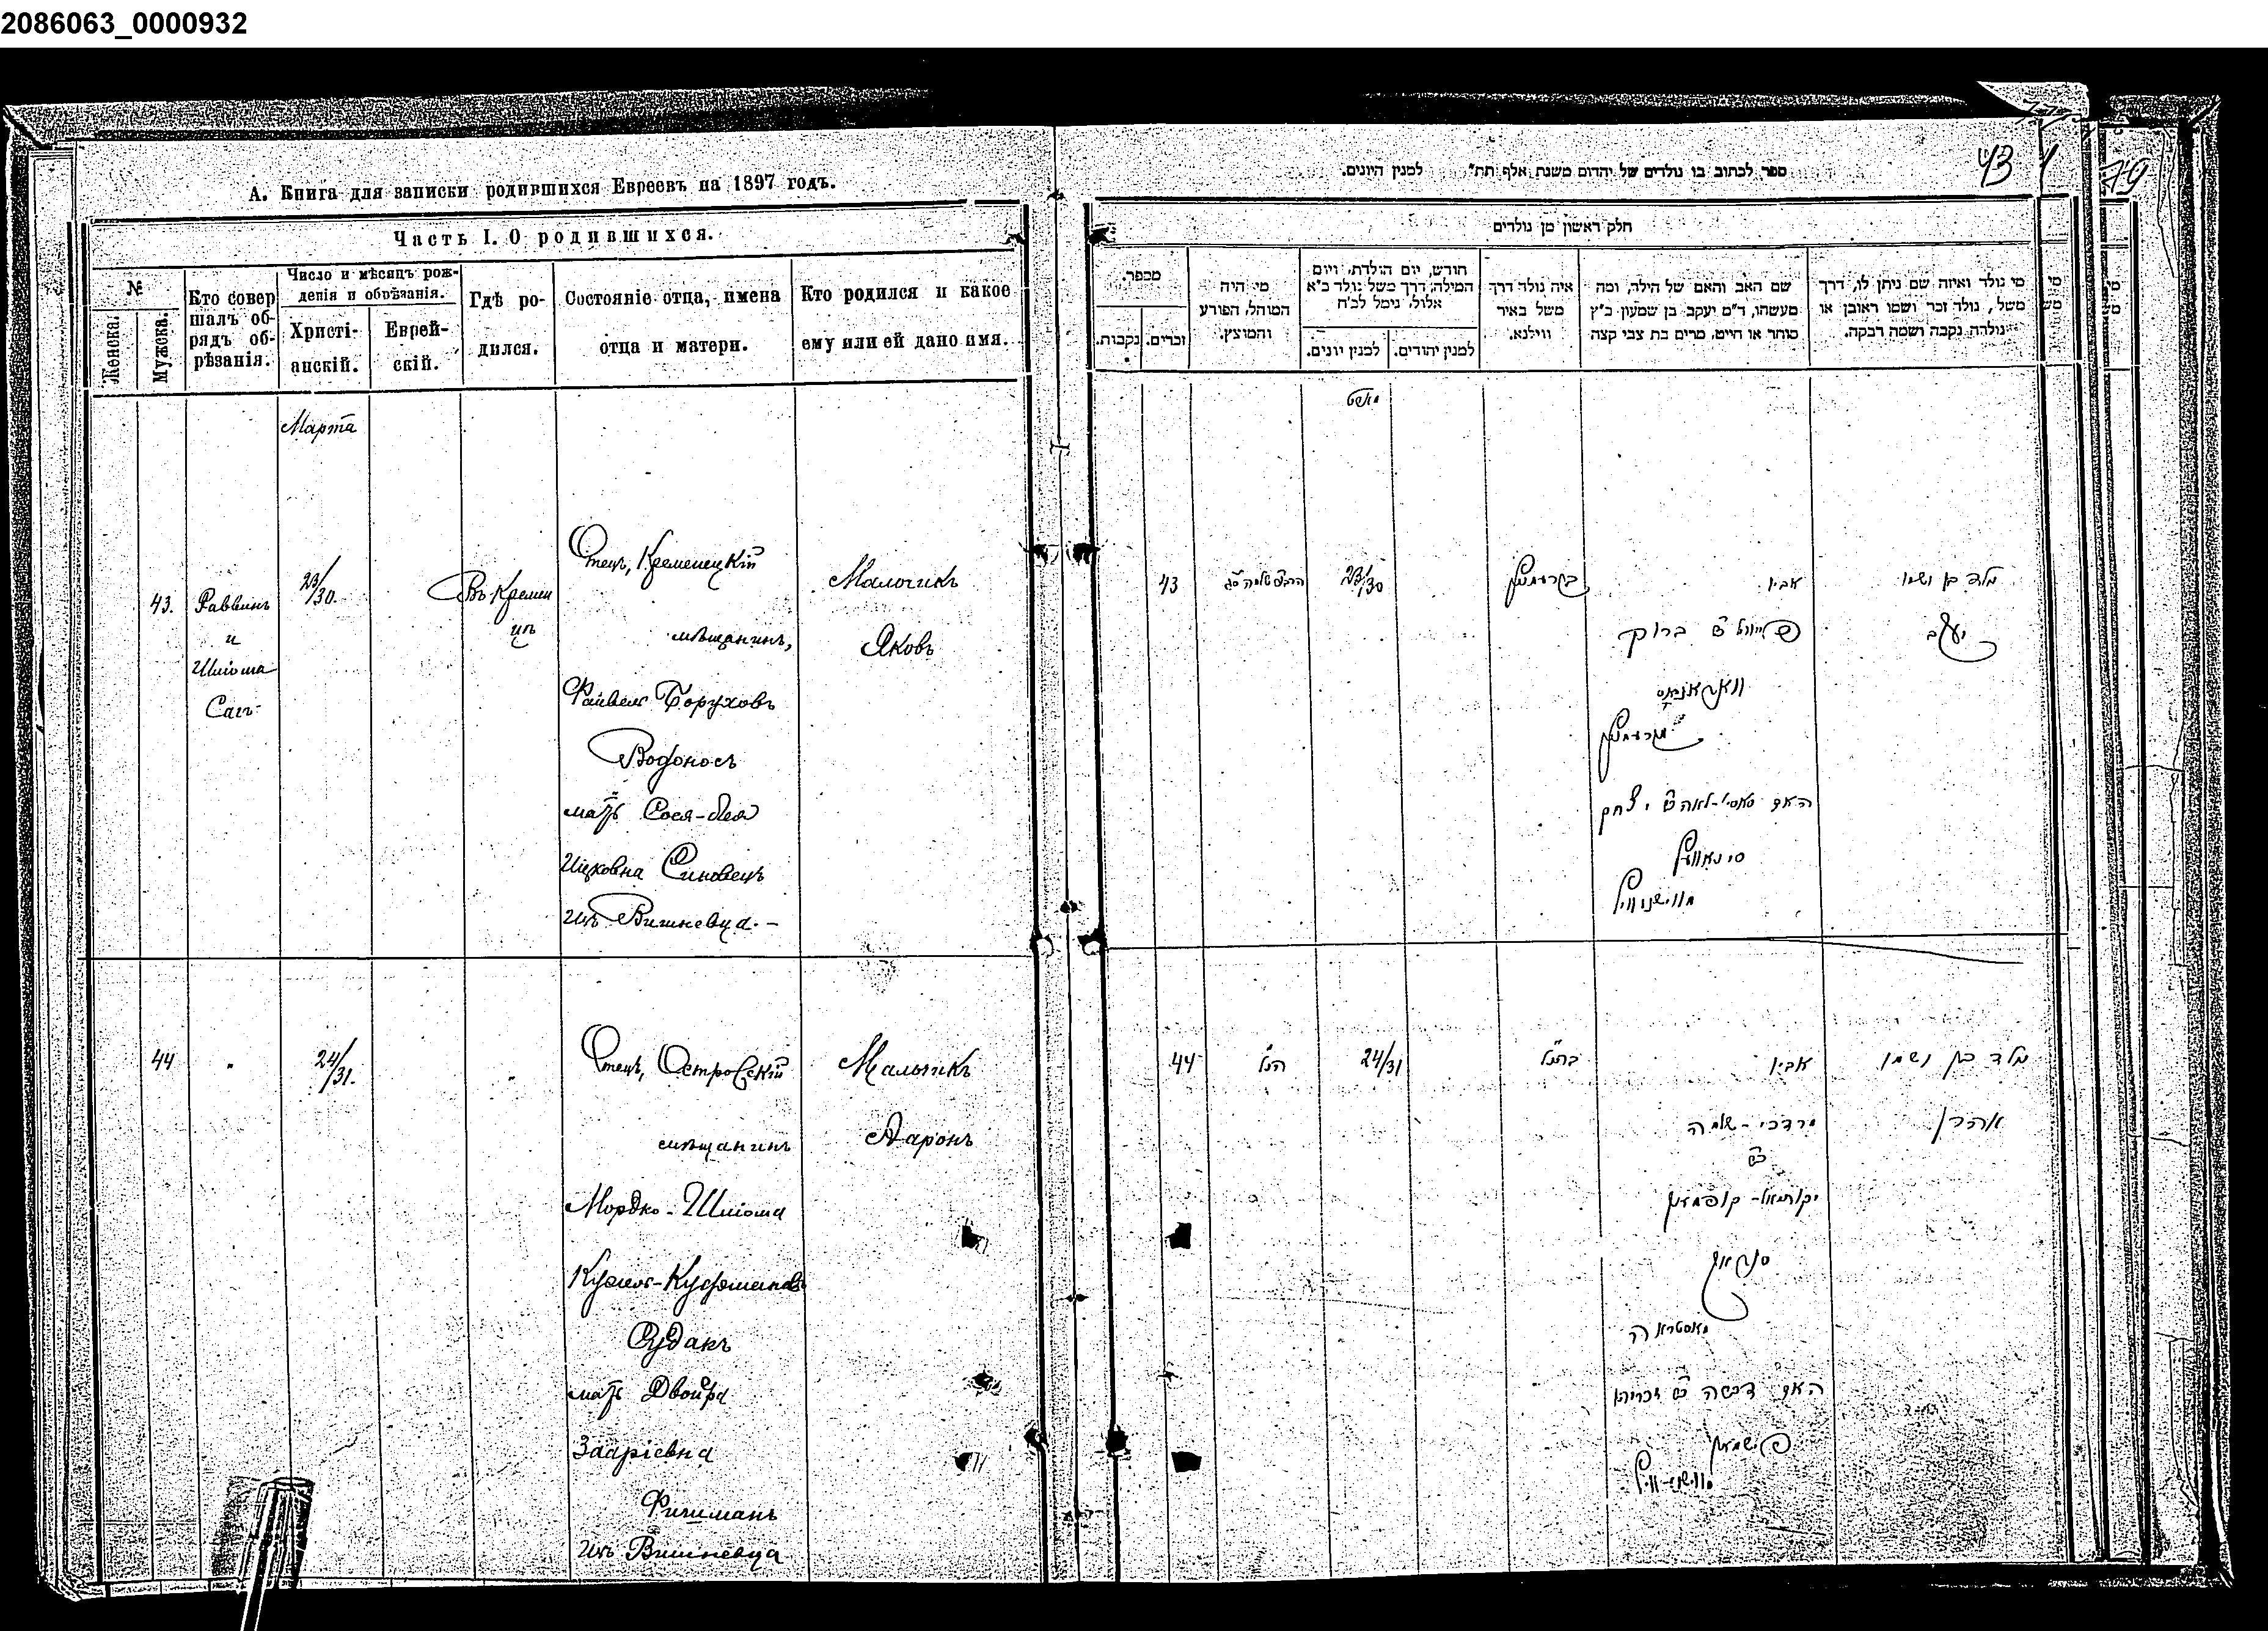 2086063_0000932
А. Книга для записки родившихся Евреевъ на 1897 годъ.
Часть I. О родившихся.
№
Женска.
Мужска.
Кто совер
шалъ об-
рядъ об-
рѣзанія.
Число и мѣсяцъ рож-
денія и обрѣзанія.
Христі-
анскій.
Еврей-
скій.
Гдѣ ро-
дился.
Состояніе отца, имена
отца и матери.
Кто родился и какое
ему или ей дано имя.
Марта
43.
Раввинъ
и
Шліома
Сагъ
23/30.
Въ Кремен
цѣ
Отецъ, Кременецкій
мѣщанинъ,
Файвель Боруховъ
Водоносъ
мать Сося-Лея
Ицковна Синовецъ
изъ Вишневца. -
Мальчикъ
Яковъ
44
"
24/31.
"
Отецъ, Островскій
мѣщанинъ
Мордко-Шліома
Судакъ
мать Двойра
Фишманъ
изъ Вишневца
Мальчикъ
Ааронъ
ספר לכתוב בו נולדים של יהדום משנת אלף תת" למנין היונים.
43
79
חלק ראשון מן נולדים
מי נולד ואיזה שם ניתן לו, דרך
משל, נולד זכר ושמו ראובן או
נולדה נקבה ושמה רבקה.
שם האב והאם של הילד, ומה
מעשהו, ד"מ יעקב בן שמעון כ"ץ
סוחר או חייט, מרים בת צבי קצה
איה נולד דרך
משל באיר
ווילנא.
חודש, יום הולדת, ויום
המילה, דרך משל נולד כ"א
אלול, נימל לכ"ח
למנין יהודים.
למנין יונים.
מי היה
המוהל, הפורע
והמוצץ.
מספר.
זכרים.
נקבות.
נולד בן ושמו
יעקב
אביו
פייוויל ב"ר ברוך
וואדאנאס
האם סאסי-לאה ב"ר יצחק
סינאוויץ
23/30
43
נולד בן ושמו
אהרן
אביו
מרדכי-שלמה
ב"ר
יקותיאל-קופמאן
סודאק
האם דבורה ב"ר זכריה
פישמאן
24/31
הנ"ל
44